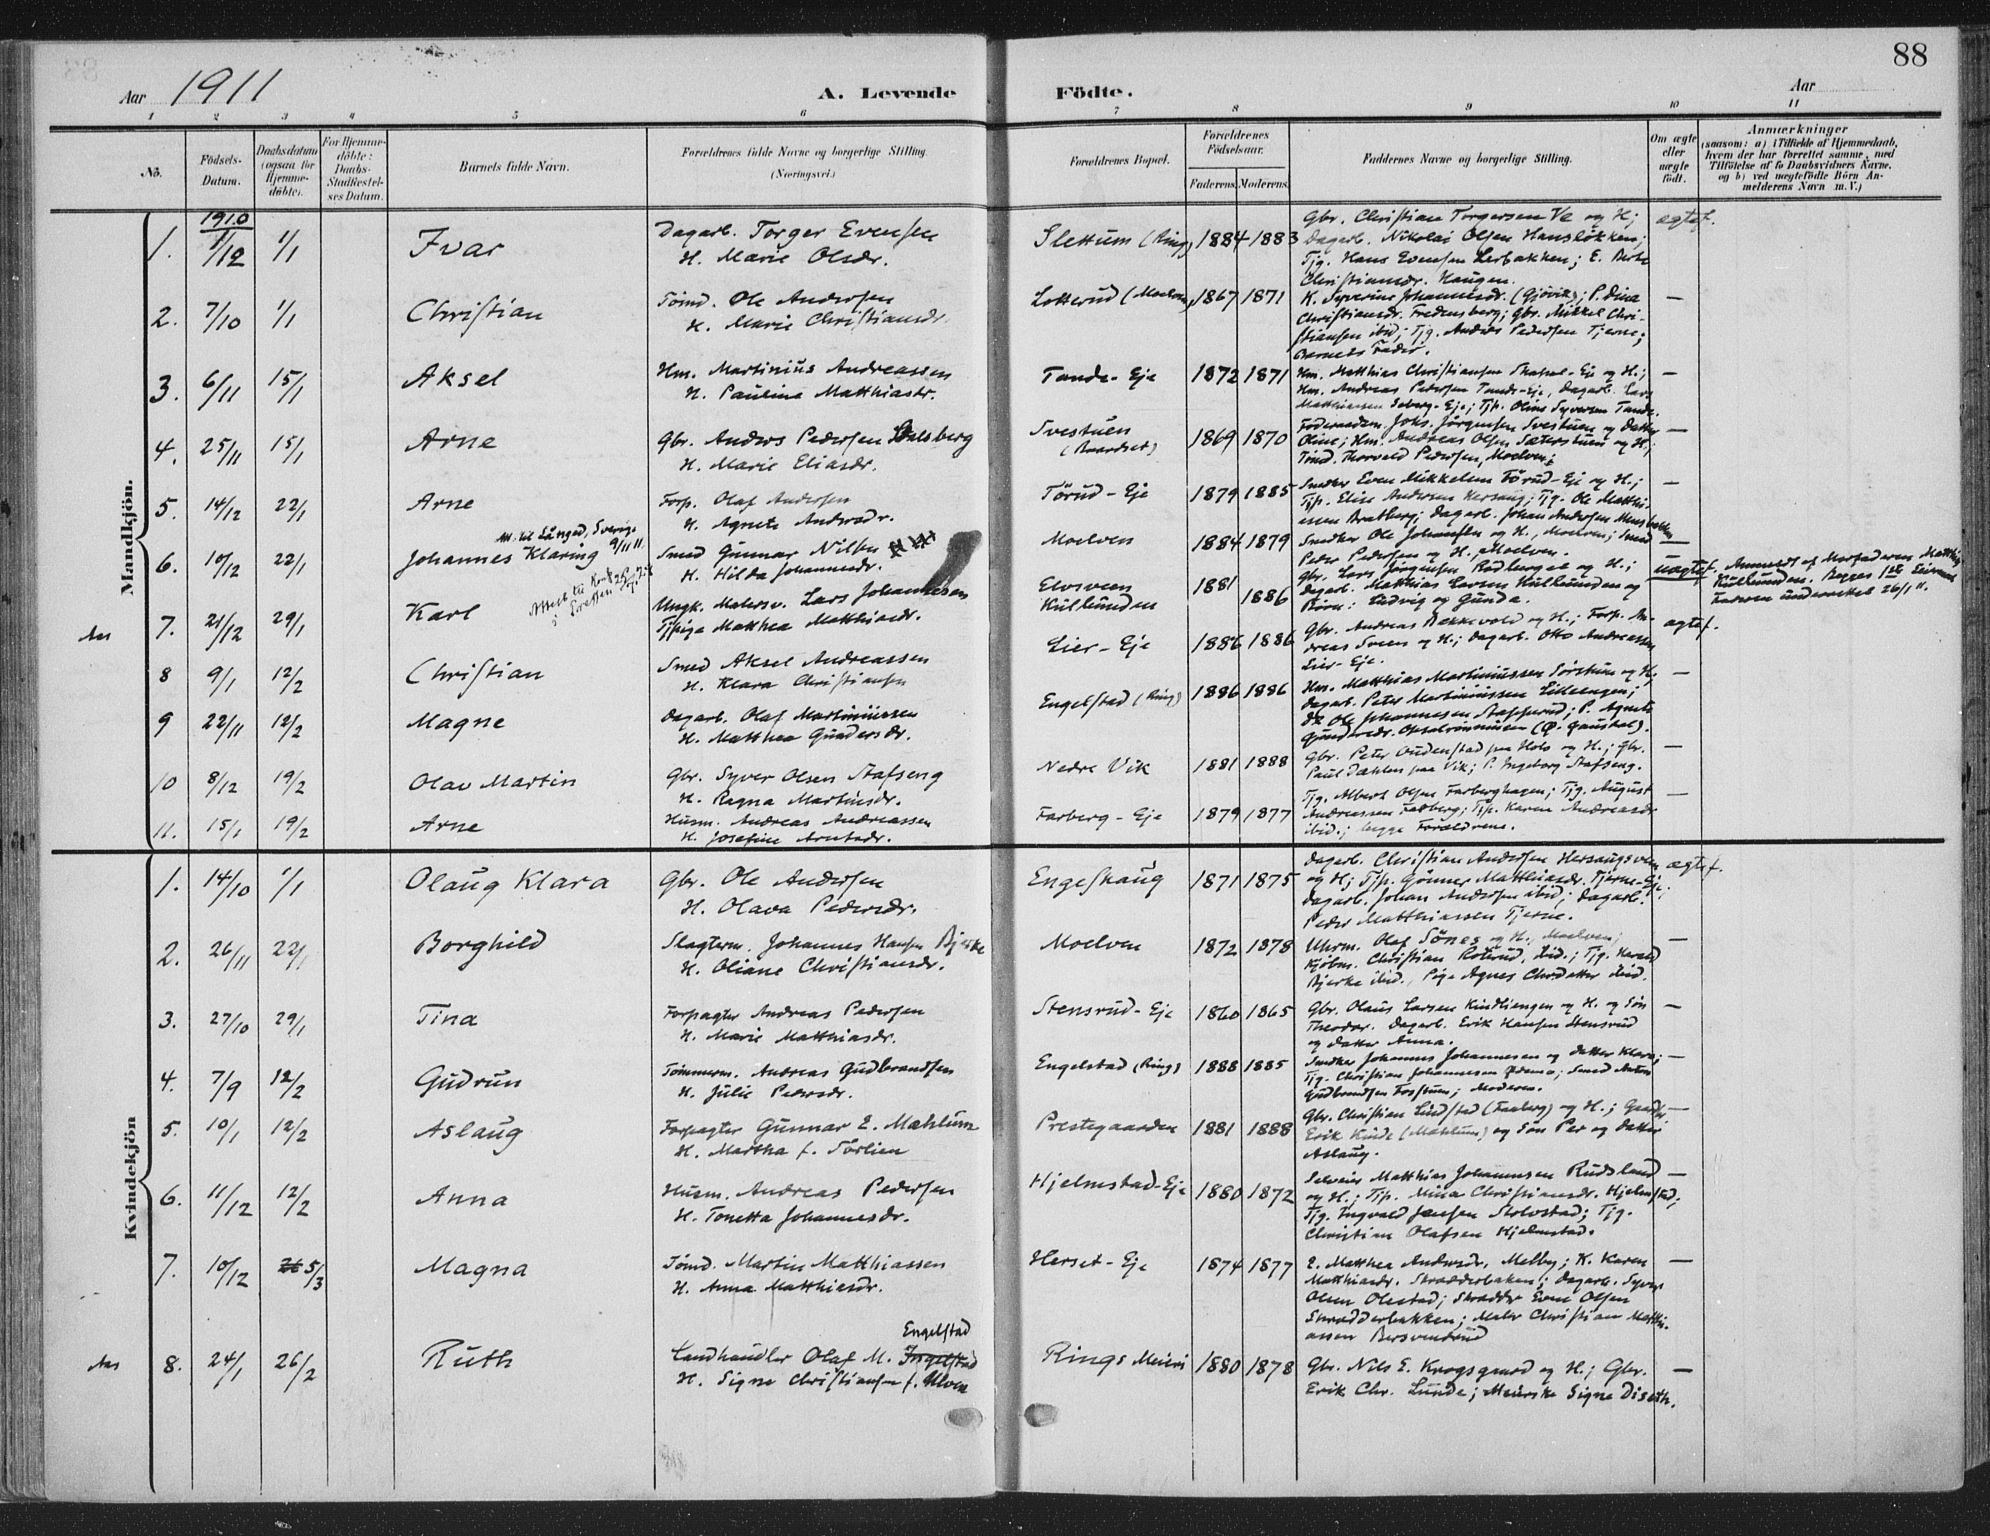 88
Aar 1911
A. Levende Födte.
Aar
1 2 3 4 5 6 7 8 9 10 11
No.
Födsels-Datum.
Daabsdatum (ogsaa for Hjemme-döbte).
For Hjemme-döbte: Daabs-Stadfæstel-ses Datum.
Barnets fulde Navn.
Forældrenes fulde Navne og borgerlige Stilling.
(Næringsvei.)
Forældrenes Bopæl.
Forældrenes Födselsaar.
Faderens. Moderens.
Faddernes Navne og borgerlige Stilling.
Om ægte eller uægte födt.
Anmærkninger
(saasom: a) i Tilfælde af Hjemmedaab,
hvem der har forrettet samme, med
Tilföielse af to Daabsvidners Navne,
og b) ved uægtefödte Börn An-
melderens Navn m. V.)
Mandkjön.
1910
1. 1/12 1/1 Ivar
Dagarb. Torger Evensen
H. Marie Olsdr.
Slettum (Ring) 1884 1883
Gbr. Christian Torgersen Ve og H;
Dagarb. Nikolai Olsen Hanslökken;
Tjg. Hans Evensen Lerbakken; E. Berte
Christiansdr. Haugen.
ægtef.
2. 7/10 1/1 Christian
Tömd. Ole Andersen
H. Marie Christiansdr.
Lotterud (Moelven) 1867 1871
K. Syverine Johannesdr. (Gjövik); P. Dina
Christiansdr. Fredensberg; Gbr. Mikkel Chri-
stiansen ibid; Tjg. Anders Pedersen Tjerne;
Barnets Fader.
—
3. 6/11 15/1 Aksel
Hm. Martinius Andreassen
H. Pauline Matthiasdr.
Tande-Eje 1872 1871
Hm. Matthias Christiansen -Eje og H.;
Hm. Andreas Pedersen Tande-Eje, Dagarb. Lars
Matthiassen -Eje; Tjp. Oline Syversen Tande.
—
4. 25/11 15/1 Arne
Gbr. Anders Pedersen
H. Marie Eliasdr.
Svestuen (Baardset) 1869 1870
Föderaadsm. Johs. Jörgensen Svestuen og Datter
Oline; Hm. Andreas Olsen Sæterstuen og H;
Tömd. Thorvald Pedersen, Moelven;
—
5. 14/12 22/1 Arne
Forp. Olaf Andersen
H. Agnete Andersdr.
Törud-Eje 1879 1885
Snedker Even Mikkelsen Törud-Eje og H.;
Tjp. Elise Andersen Hersaug; Tjg. Ole Matthi-
assen Bratberg; Dagarb. Johan Andersen
—
6. 10/12 22/1 Johannes Klaring
Att. til Långed, Sverige 9/11 11.
Smed Gunnar Nilsen
H. Hilda Johannesdr.
Moelven 1884 1879
Snedker Ole Johansen og H., Moelven; Smed
Peder Pedersen og H., Moelven.
—
7. 21/12 29/1 Karl
Attest til Konf.
Ungk. Malersv. Lars Johannesen
Tjpige Matthea Matthiasdr.
Elvsveen
Kullunden 1881 1886
Gbr. Lars Jörgensen Rodberget og H.;
Dagarb. Matthias Larsen Kullunden og
Börn: Ludvig og Gunda.
uægtef.
Anmeldt af Morfaderen Matthias
Kullunden. Begges 1ste Leiermaal
Faderen underrettet 26/1 11.
8 9/1 12/2 Christian
Smed Aksel Andreassen
H. Klara Christiansen
Lier-Eje 1886 1886
Gbr. Andreas Bækkevold og H; Forp. An-
dreas Sveen og H; Dagarb. Otto Andreassen
Lier-Eje.
ægtef.
9 22/11 12/2 Magne
Dagarb. Olaf Martiniussen
H. Matthea Gundersdr.
Engelstad (Ring) 1886 1886
Hm. Matthias Martiniussen Sörstuen og H;
Dagarb. Peter Martiniussen Lilleengen;
Ole Johannesen ; P. Agnete
Gundersdr. (Ö. Gausdal).
—
10 8/12 19/2 Olav Martin
Gbr. Syver Olsen Stafseng
H. Ragna Martinsdr.
Nedre Vik 1881 1888
Gbr. Peter Oudenstad paa Hols og H.; Gbr.
Paul Dæhlen paa Vik; P. Ingeborg Stafseng.
—
11. 15/1 19/2 Arne
Husm. Andreas Andreassen
H. Josefine Arntsdr.
Farberg-Eje 1879 1877
Tjg. Albert Olsen Farberghagen; Tjg. August
Andreassen Farberg; Tjp. Karen Andreasdr
ibid.; begge Forældrene.
—
Kvindekjön
1. 14/10 1/1 Olaug Klara
Gbr. Ole Andersen
H. Olava Pedersdr.
Engeshaug 1871 1875
Dagarb. Christian Andersen Hersaugsveen
og H; Tjp. Gönner Matthiasdr. Tjerne-Eje;
Dagarb. Johan Andersen ibid; Dagarb.
Peder Matthiassen Tjerne.
ægtef.
2. 26/11 22/1 Borghild
Slagterm. Johannes Hansen Bjerke
H. Oliane Christiansdr.
Moelven 1872 1878
Uhrm. Olaf Sönes og H., Moelven;
Kjöbm. Christian Roterud, ibid.; Tjg. Harald
Bjerke ibid., Pige Agnes ibid.
—
3. 27/10 29/1 Tina
Forpagter Andreas Pedersen
H. Marie Matthiasdr.
Stensrud-Eje 1860 1865
Gbr. Olaus Larsen Kindliengen og H. og Sön
Theodor. Dagarb. Erik Hansen Stensrud
og Datter Anna.
—
4. 7/9 12/2 Gudrun
Tömmerm. Andreas Gudbrandsen
H. Julie Pedersdr.
Engelstad (Ring) 1888 1885
Snedker Johannes Johannesen og Datter Klara;
Tjg. Christian Johannesen Ödemo; Smed Anton
Gudbrandsen Fosstuen; Moderen.
—
5. 10/1 12/2 Aslaug
Forpagter Gunnar E. Mæhlum
H. Martha f. Sörlien
Prestegaarden 1881 1888
Gbr. Christian Lindstad (Faaberg) og H.; Gaardbr.
Erik Kinde (Mæhlum) og Sön Per og Datter
Aslaug.
—
6. 11/12 12/2 Anna
Husm. Andreas Pedersen
H. Tonetta Johannesdr.
Hjelmstad-Eje 1880 1872
Selveier Matthias Johannesen Rudsland
og H.; Tjp. Mina Christiansdr. Hjelmstad;
Tjg. Ingvald Jensen Skolvstad; Tjg.
Christian Olafsen Hjelmstad.
—
7. 10/12 26 5/3 Magna
Tömd. Martin Matthiassen
H. Anna Matthiasdr.
Herset-Eje 1874 1877
E. Matthea Andersdr. Melby; K. Karen
Matthiasdr. Skrædderbakken; Dagarb. Syver
Olsen Olestad; Skrædder Even Olsen
Skrædderbakken; Maler Christian Matthi-
assen Bersvendrud
—
8. 24/1 26/2 Ruth
Engelstad
Landhandler Olaf M. Ingelstad
H. Signe Christiansen f. Ulven
Rings Meieri 1880 1878
Gbr. Nils E. Krogsgaard og H.; Gbr.
Erik Chr. Lunde; Meierske Signe Diseth.
—